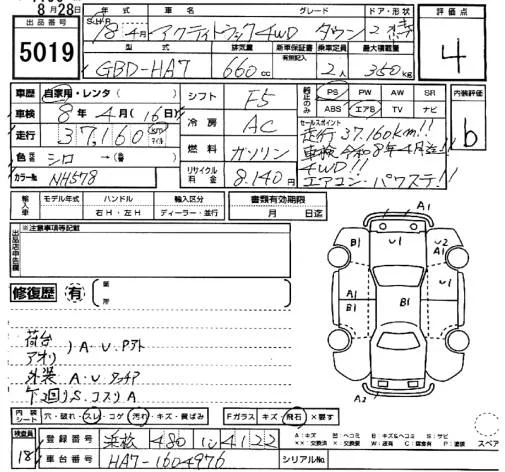 8月28日
5019
年式 車名 グレード ドア・形状
18年4月 アクティトラック4WD タウン 2
型式 排気量 新車保証書 乗車定員 最大積載量
有無記入
GBD-HA7 660cc 2人 350kg
評価点
4
車歴 自家用・レンタ( )
車検 8年4月(16)日
走行 37,160 km マイル
色 シロ→( )
カラーNo NH578
シフト F5
冷房 AC
燃料 ガソリン
リサイクル料金 8,140円
純正のみ PS PW AW SR
ABS エアB TV ナビ
セールスポイント
走行37,160km!!
車検令和8年4月迄!!
4WD!!
エアコン・パワステ!!
内装評価
b
輸入車 モデル年式 ハンドル 輸入区分 書類有効期限
右H・左H ディーラー・並行 月 日迄
出品店申告欄
※注意事項等記載
修復歴 有
箇所
荷台
アオリ )A・U・Pアト
外装 A・U・タッチア
下回りS・コスリA
A1
B1 U1 U2 A1
A1 B1 A1
A2
内装シート 穴・破れ・スレ・コゲ 汚れ・キズ・黄ばみ Fガラス キズ 飛石 ×要す
検査員 18
登録番号 浜松 480 い 4122
車台番号 HA7-1604976 シリアルNo.
A:キズ U:ヘコミ B:キズ&ヘコミ S:サビ
××:交換済 X:交換要 W:波有 C:腐食有 P:塗装
スペア